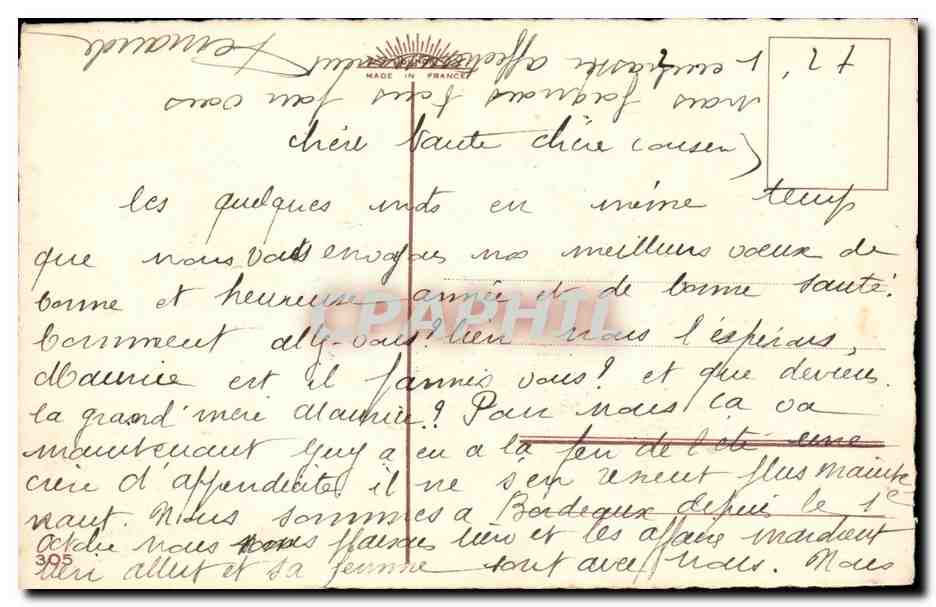 MADE IN FRANCE
chère tante chère cousen
les quelques mots en même temp
que nous vous envoyons nos meilleurs voeux de
bonne et heureuse année et de bonne santé.
Comment ally-vous? bien nous l'espérons,
Maurice est il parmis vous? et que deviens
la grand'mère Maurice? Pour nous ça va
maintenant Guy a eu a la fin de l'été une
crise d'appendicite il ne s'en resent plus mainte-
nant. Nous sommes a Bordeaux depuis le 1e
Octobre nous nous plaisons bien et les affaires marchent
bien et sa femme sont avec nous. Nous
305
vous
t'embrasse affectueusement
Fernande
CPAPHIL